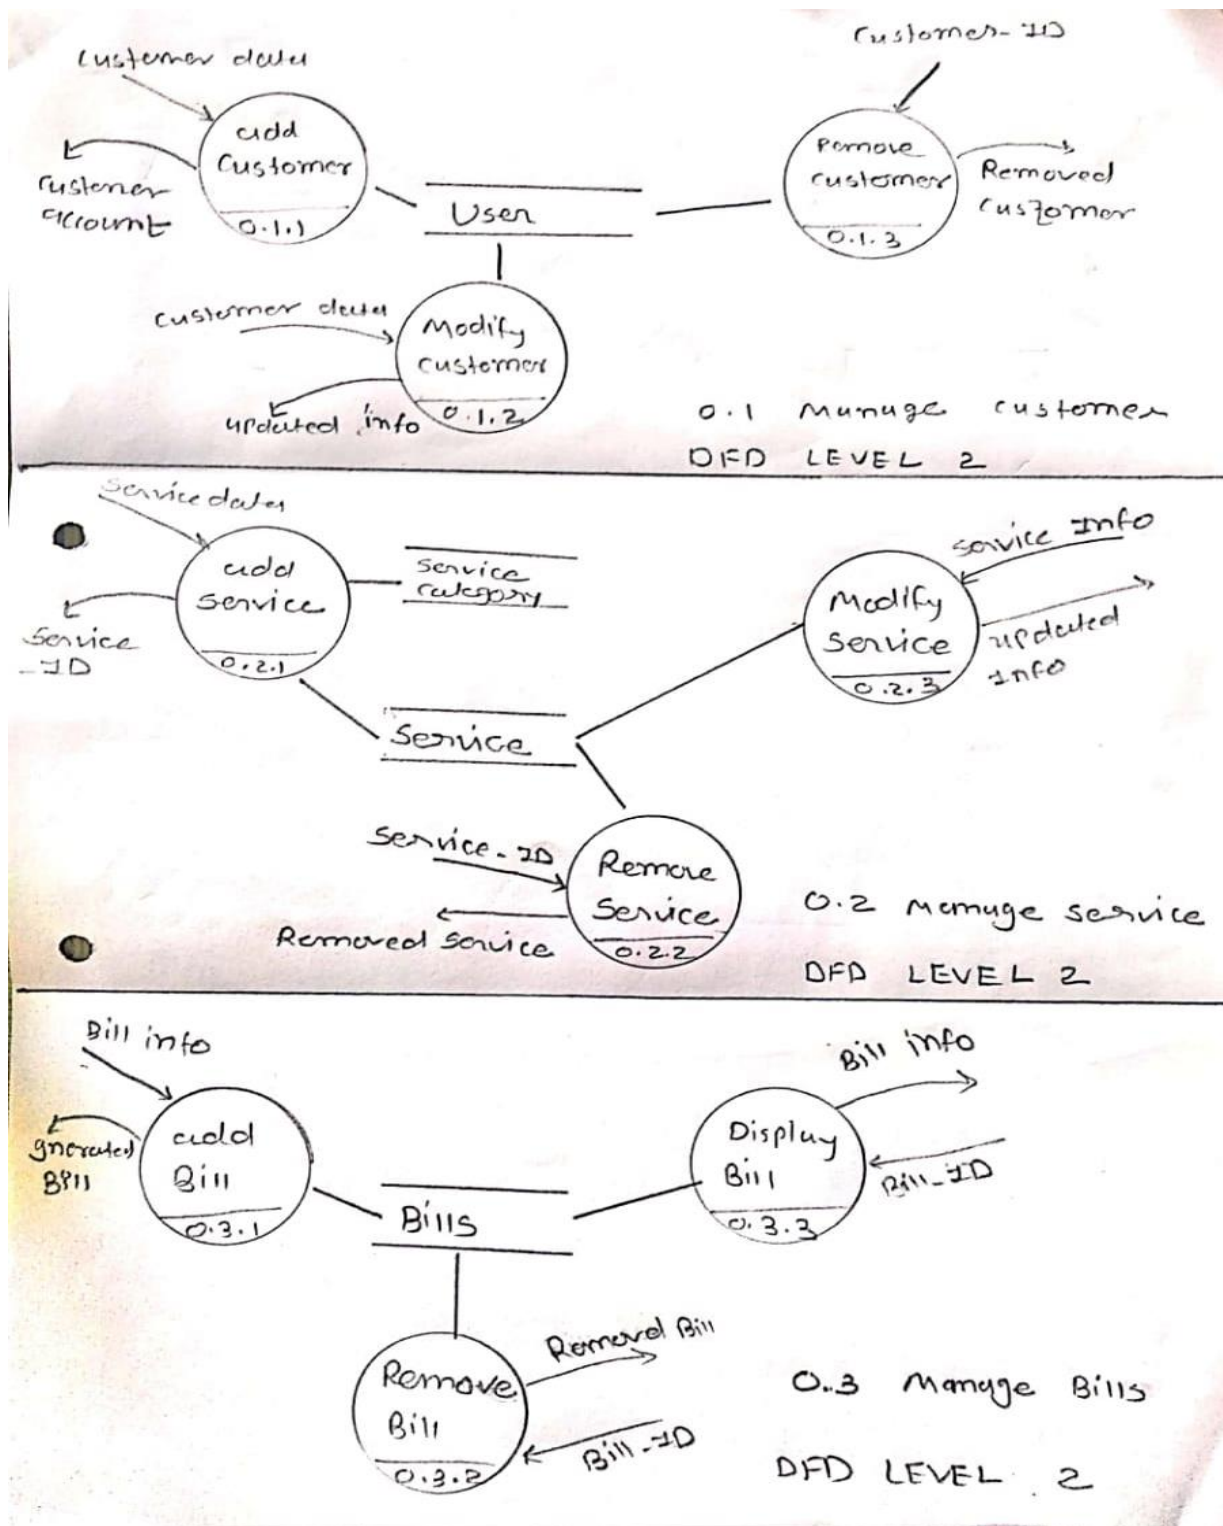 Customer data
Customer-ID
add
Customer
0.1.1
Customer
account
User
Remove
customer
0.1.3
Removed
customer
Customer data
Modify
customer
0.1.2
updated info
0.1 Manage customer
DFD LEVEL 2
Service data
add
service
0.2.1
Service
-ID
Service
category
Service Info
Modify
Service
0.2.3
updated
Info
Service
Service-ID
Remove
Service
0.2.2
Removed service
0.2 Manage service
DFD LEVEL 2
Bill info
add
Bill
0.3.1
gnerated
Bill
Bills
Bill info
Display
Bill
0.3.3
Bill-ID
Remove
Bill
0.3.2
Removed Bill
Bill-ID
0.3 Manage Bills
DFD LEVEL 2